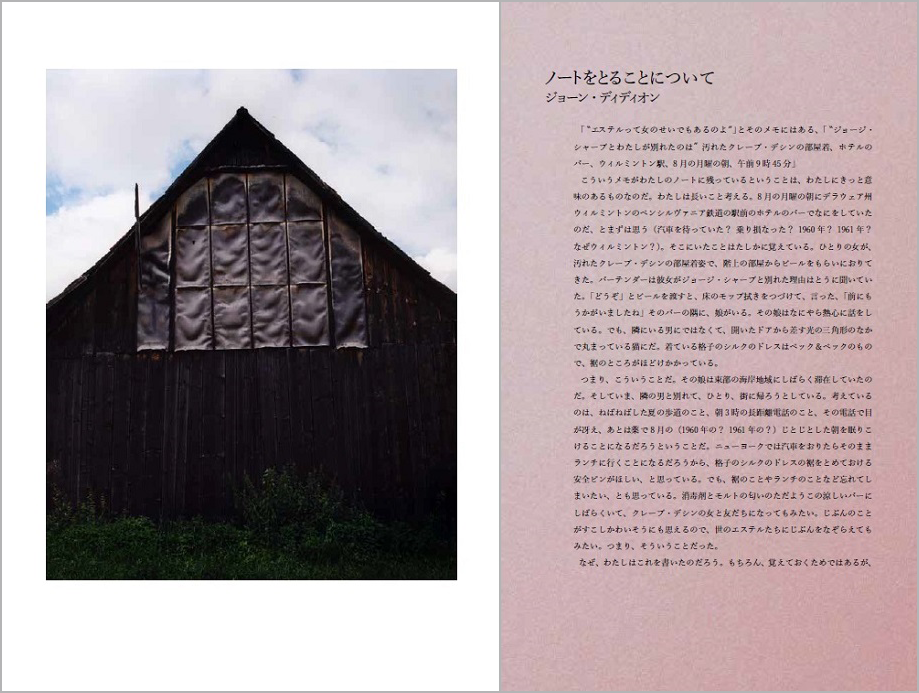 ノートをとることについて
ジョーン・ディディオン
「“エステルって女のせいでもあるのよ”」とそのメモにはある、「“ジョージ・
シャープとわたしが別れたのは” 汚れたクレープ・デシンの部屋着、ホテルの
バー、ウィルミントン駅、8月の月曜の朝、午前9時45分」
こういうメモがわたしのノートに残っているということは、わたしにきっと意
味のあるものなのだ。わたしは長いこと考える。8月の月曜の朝にデラウェア州
ウィルミントンのペンシルヴァニア鉄道の駅前のホテルのバーでなにをしていた
のだ、とまずは思う（汽車を待っていた？ 乗り損なった？ 1960年？ 1961年？
なぜウィルミントン？）。そこにいたことはたしかに覚えている。ひとりの女が、
汚れたクレープ・デシンの部屋着姿で、階上の部屋からビールをもらいにおりて
きた。バーテンダーは彼女がジョージ・シャープと別れた理由はとうに聞いてい
た。「どうぞ」とビールを渡すと、床のモップ拭きをつづけて、言った、「前にも
うかがいましたね」そのバーの隅に、娘がいる。その娘はなにやら熱心に話をし
ている。でも、隣にいる男にではなくて、開いたドアから差す光の三角形のなか
で丸まっている猫にだ。着ている格子のシルクのドレスはペック＆ペックのもの
で、裾のところがほどけかかっている。
つまり、こういうことだ。その娘は東部の海岸地域にしばらく滞在していたの
だ。そしていま、隣の男と別れて、ひとり、街に帰ろうとしている。考えている
のは、ねばねばした夏の歩道のこと、朝3時の長距離電話のこと、その電話で目
が冴え、あとは薬で8月の（1960年の？ 1961年の？）じとじとした朝を眠りこ
けることになるだろうということだ。ニューヨークでは汽車をおりたらそのまま
ランチに行くことになるだろうから、格子のシルクのドレスの裾をとめておける
安全ピンがほしい、と思っている。でも、裾のことやランチのことなど忘れてし
まいたい、とも思っている。消毒剤とモルトの匂いのただようこの涼しいバーに
しばらくいて、クレープ・デシンの女と友だちになってもみたい。じぶんのこと
がすこしかわいそうにも思えるので、世のエステルたちにじぶんをなぞらえても
みたい。つまり、そういうことだった。
なぜ、わたしはこれを書いたのだろう。もちろん、覚えておくためではあるが、